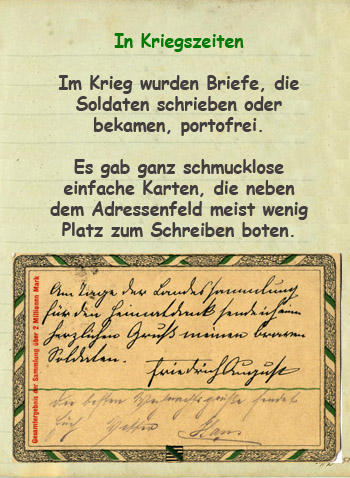 In Kriegszeiten
Im Krieg wurden Briefe, die
Soldaten schrieben oder
bekamen, portofrei.
Es gab ganz schmucklose
einfache Karten, die neben
dem Adressenfeld meist wenig
Platz zum Schreiben boten.
Gesamtergebnis der Sammlung über 2 Millionen Mark
Am Tage der Landessammlung
für den Heimatdank sende ich einen
herzlichen Gruß meinen braven
Soldaten.
Friedrich August
Die besten Weihnachtsgrüße sendet
Hans